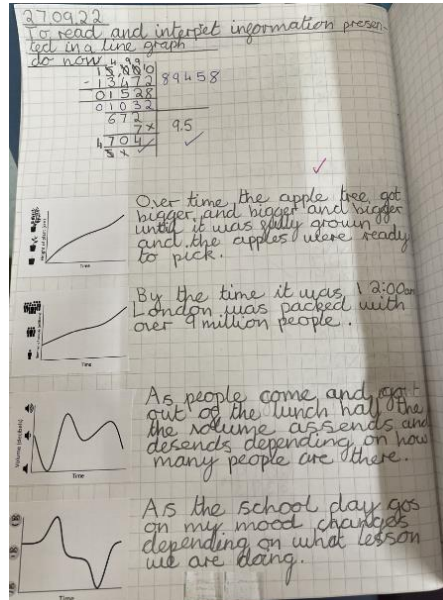 27.09.22
To read and interpret information presen-
ted in a line graph
do now
15,000
- 13472
01528
01032
89458
672
7x
4704
9.5
Over time the apple tree got
bigger and bigger and bigger
until it was fully grown
and the apples were ready
to pick.
Time
By the time it was 12:00am
London was packed with
over 9 million people.
Time
As people come and
out of the lunch hall the
the volume assends and
desends depending on how
many people are there.
Volume (decibels)
Time
As the school day gos
on my mood changes
depending on what lesson
we are doing.
Time